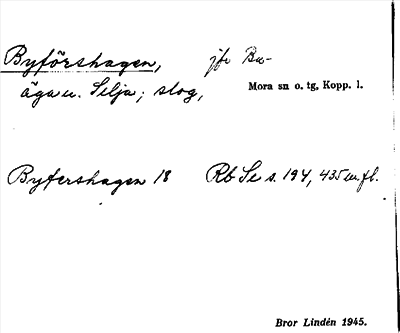 Byförshagen, jfr Bu-
äga u. Selja; skog, Mora sn o. tg, Kopp. l.
Byfershagen 18 Rb Se s. 194, 435 m.fl.
Bror Lindén 1945.